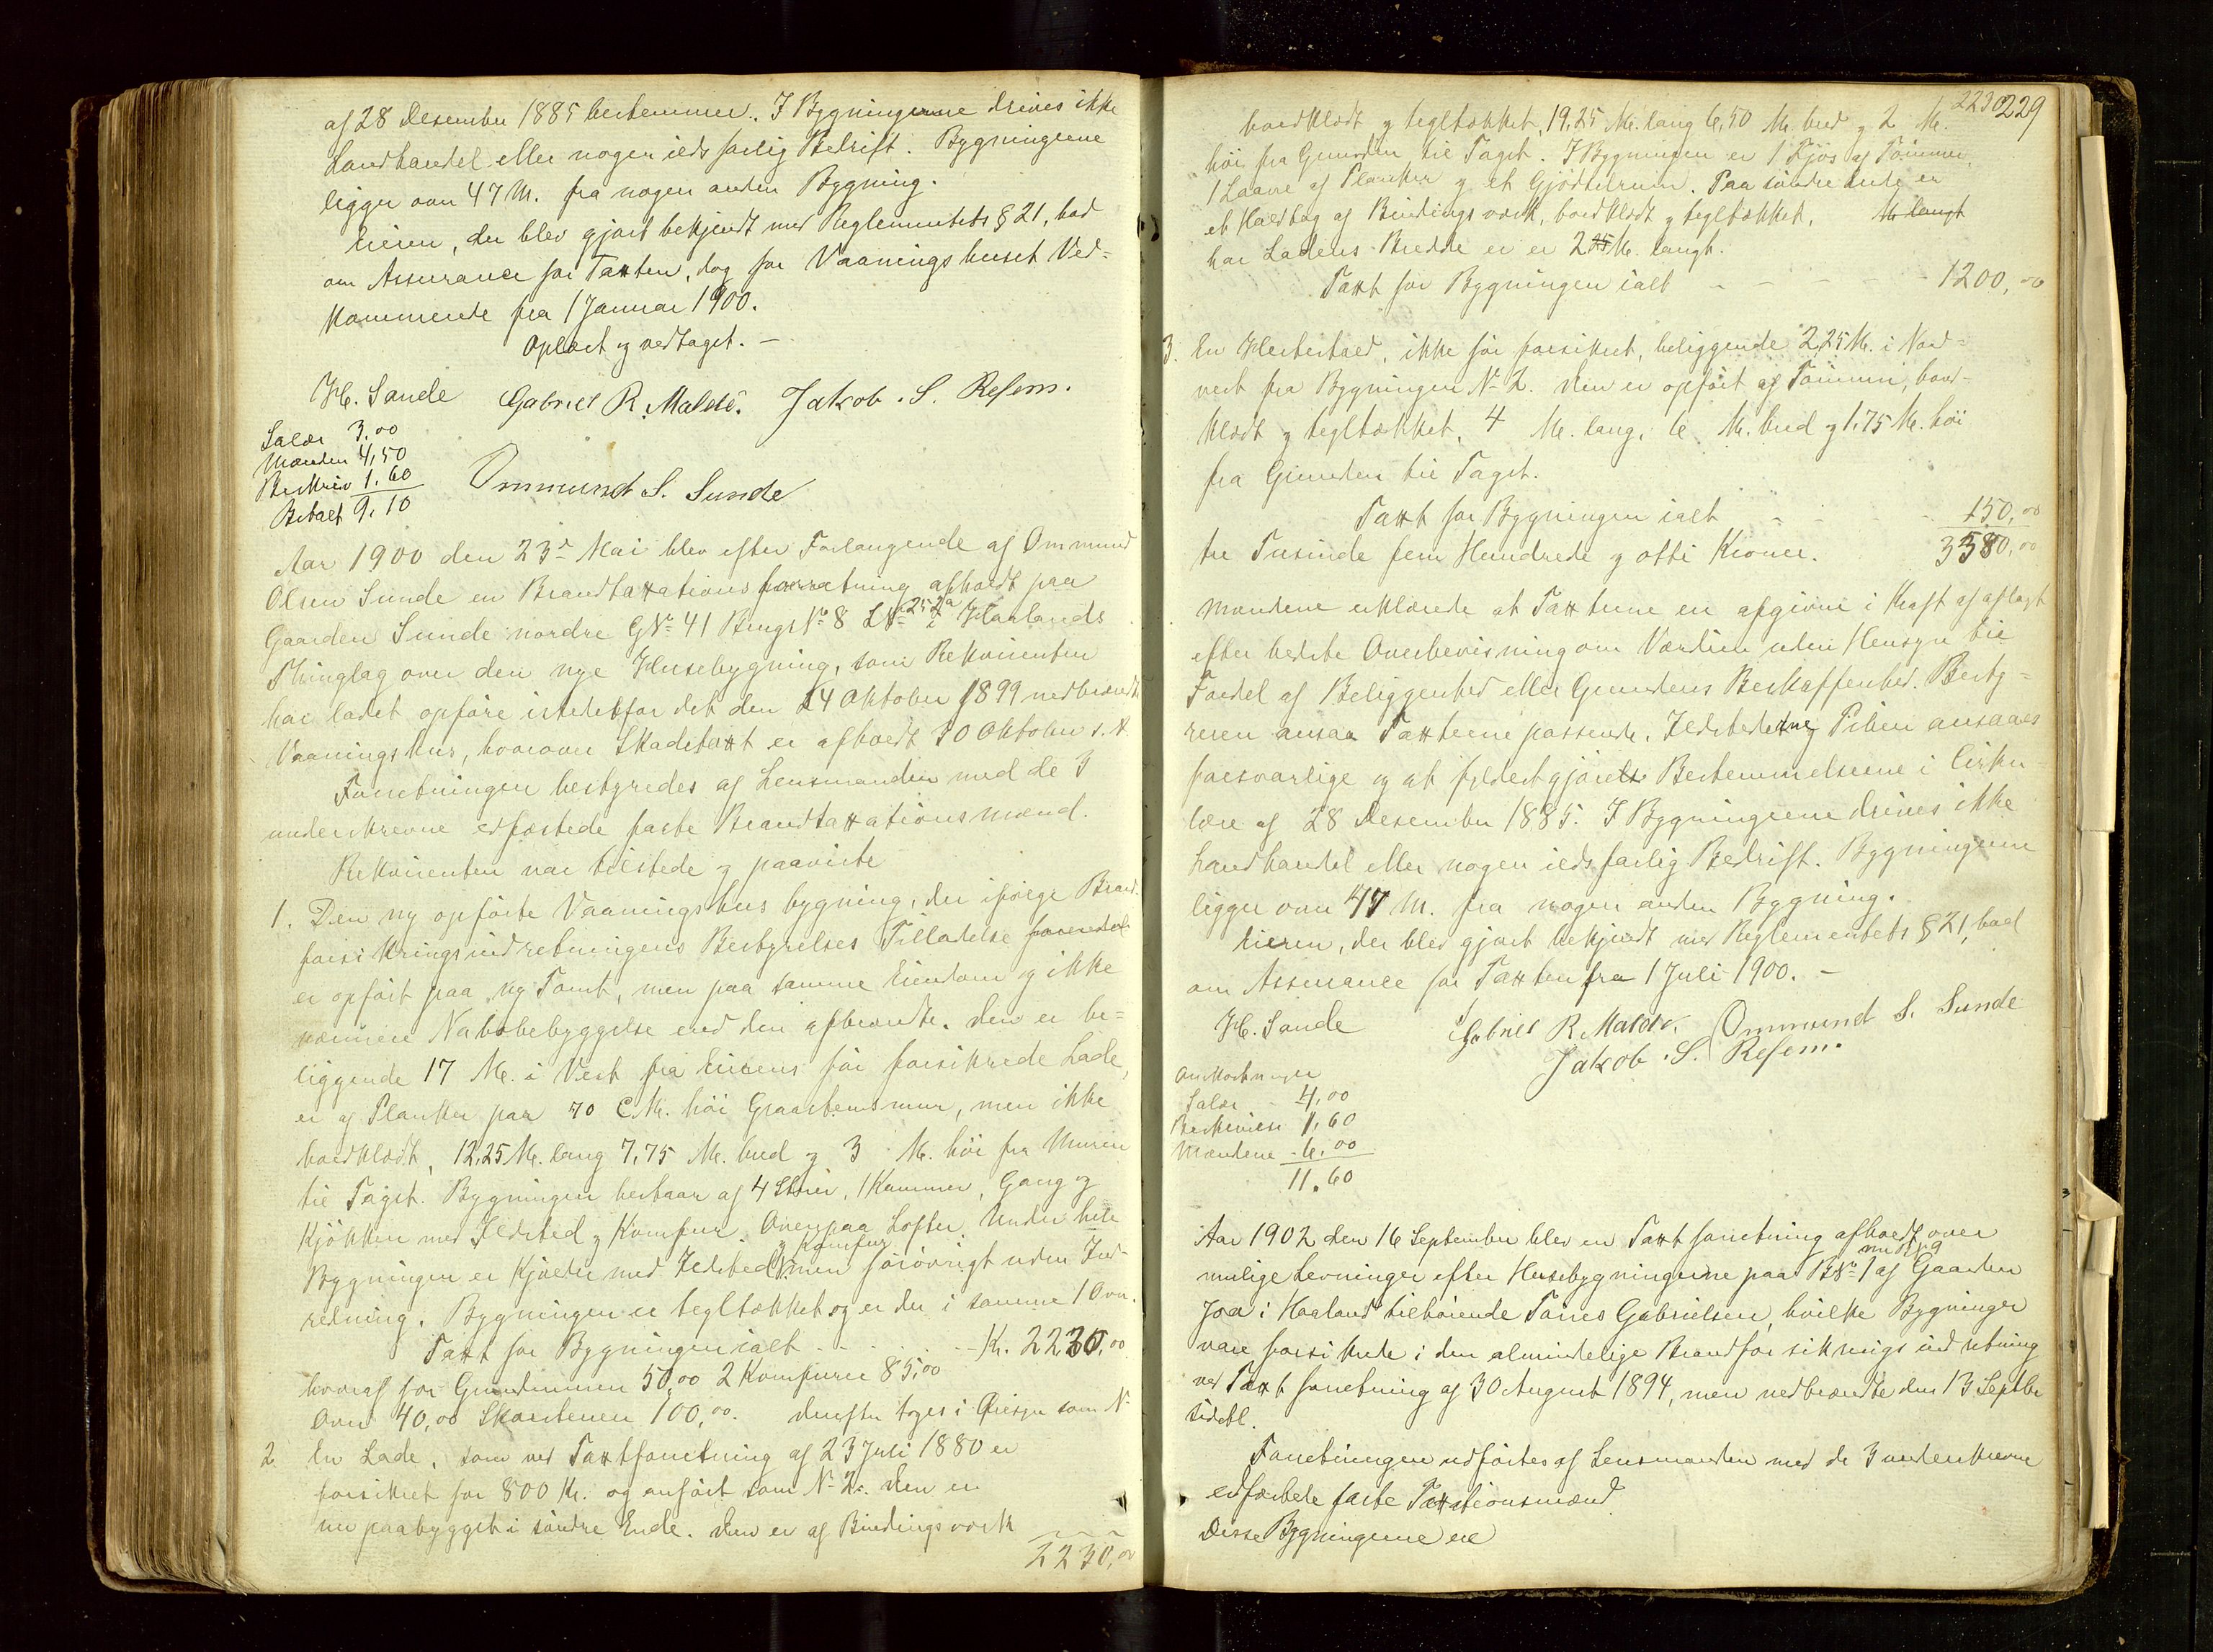 af 28 Desember 1885 bestemmer. I Bygningerne drives ikke
Landhandel eller nogen ildsfarlig Bedrift. Bygningerne
ligger over 47 M. fra nogen anden Bygning.
Eieren, der blev gjort bekjendt med Reglementets § 21, bad
om Assurance for Taxten, dog for Vaaningshuset Ved=
kommende fra 1 Januar 1900.
Oplæst og vedtaget. —
H. Sande Gabriel R. Malde. Jakob. S. Refsem.
Salær 3,00
Mænden 4,50
Beskriv 1,60
Betalt 9,10
Ommund S. Sunde
Aar 1900 den 23de Mai blev efter Forlangende af Ommund
Olsen Sunde en Brandtaxationsforretning afholdt paa
Gaarden Sunde nordre GNo 41 BrugsNo 8 LNo 252a i Haalands
Thinglag over den nye Husebygning, som Rekvirenten
har ladet opføre istedetfor det den 24 Oktober 1899 nedbrændte
Vaaningshus, hvorover Skadetaxt er afholdt 30 Oktober s. A.
Forretningen bestyredes af Lensmanden med de 3
underskrevne edfæstede faste Brandtaxationsmænd.
Rekvirenten var tilstede og paaviste
1. Den ny opførte Vaaningshusbygning, der ifølge Brand-
forsikringsindretningens Bestyrelses Tilladelse
er opført paa ny Tomt, men paa samme Eiendom og ikke
nærmere Nabobebyggelse end den afbrændte. Den er be=
liggende 17 M. i Vest fra Eierens før forsikrede Lade,
er af Planker paa 70 C.M. høi Graastensmur, men ikke
bordklædt, 12,25 M. lang 7,75 M. bred og 3 M. høi fra Muren
til Taget. Bygningen bestaar af 4 Stuer, 1 Kammer, Gang og
Kjøkken med Ildsted og Komfur. Ovenpaa Lofter. Under hele
Bygningen er Kjælder med Ildsted og Komfur men forøvrigt uden Ind-
retning. Bygningen er tegltækket og er der i samme 1 Ovn.
Taxt for Bygningen ialt - - - - Kr. 2230,00
hvoraf for Grundmuren 50,00 2 Komfurer 85,00
Ovn 40,00 Skorstenen 100,00. Derefter toges i Øiesyn som No
2. En Lade, som ved Taxtforretning af 23 Juli 1880 er
forsikret for 800 Kr. og anført som No 2. Den er
nu paabygget i søndre Ende. Den er af Bindingsværk
2230,00
2230 229
bordklædt og tegltækket, 19,25 M. lang 6,50 M. bred og 2 M.
høi fra Grunden til Taget. I Bygningen er 1 Fjøs af Tømmer,
1 Laave af Planker og et Gjødselrum. Paa søndre Ende er
et Halvtag af Bindingsværk, bordklædt og tegltækket, M. langt
har Ladens Bredde er er 2 M. langt.
Taxt for Bygningen ialt - - - - - 1200,00
3. En Hestestald, ikke før forsikret, beliggende 2,25 M. i Nord=
vest fra Bygningen No 2. Den er opført af Tømmer, bord-
klædt og tegltækket, 4 M. lang, 6 M. bred og 1,75 M. høi
fra Grunden til Taget.
Taxt for Bygningen ialt - - - 150,00
tre Tusinde fem Hundrede og otti Kroner. 3580,00
Mændene erklærede at Taxterne er afgivne i Kraft af aflagt
efter bedste Overbevisning om Værdien uden Hensyn til
Fordel af Beliggenhed eller Grundens Beskaffenhed. Besty=
reren ansaa Taxterne passende. Ildstederne og Piben ansaaes
forsvarlige og at fyldestgjøre Bestemmelserne i Cirku
lære af 28 Desember 1885. I Bygningerne drives ikke
Landhandel eller nogen ildsfarlig Bedrift. Bygningerne
ligger over 47 M. fra nogen anden Bygning.
Eieren, der blev gjort bekjendt med Reglementets § 21, bad
om Assurance for Taxten fra 1 Juli 1900. —
H. Sande Gabriel R. Malde. Ommund S. Sunde
Jakob. S. Refsem.
Salær 4,00
Beskrivelse 1,60
Mændene 6,00
11,60
Aar 1902 den 16 September blev en Taxtforretning afholdt over
mulige Levninger efter Husebygningerne paa BNo 1 af Gaarden
Joa i Haaland tilhørende Tørres Gabrielsen, hvilke Bygninger
vare forsikrede i den almindelige Brandforsikringsindretning
ved Taxtforretning af 30 August 1894, men nedbrændte den 13 Septbr
sidstl.
Forretningen udførtes af Lensmanden med de 3 underskrevne
edfæstede faste Taxtionsmænd
Disse Bygningerne ere